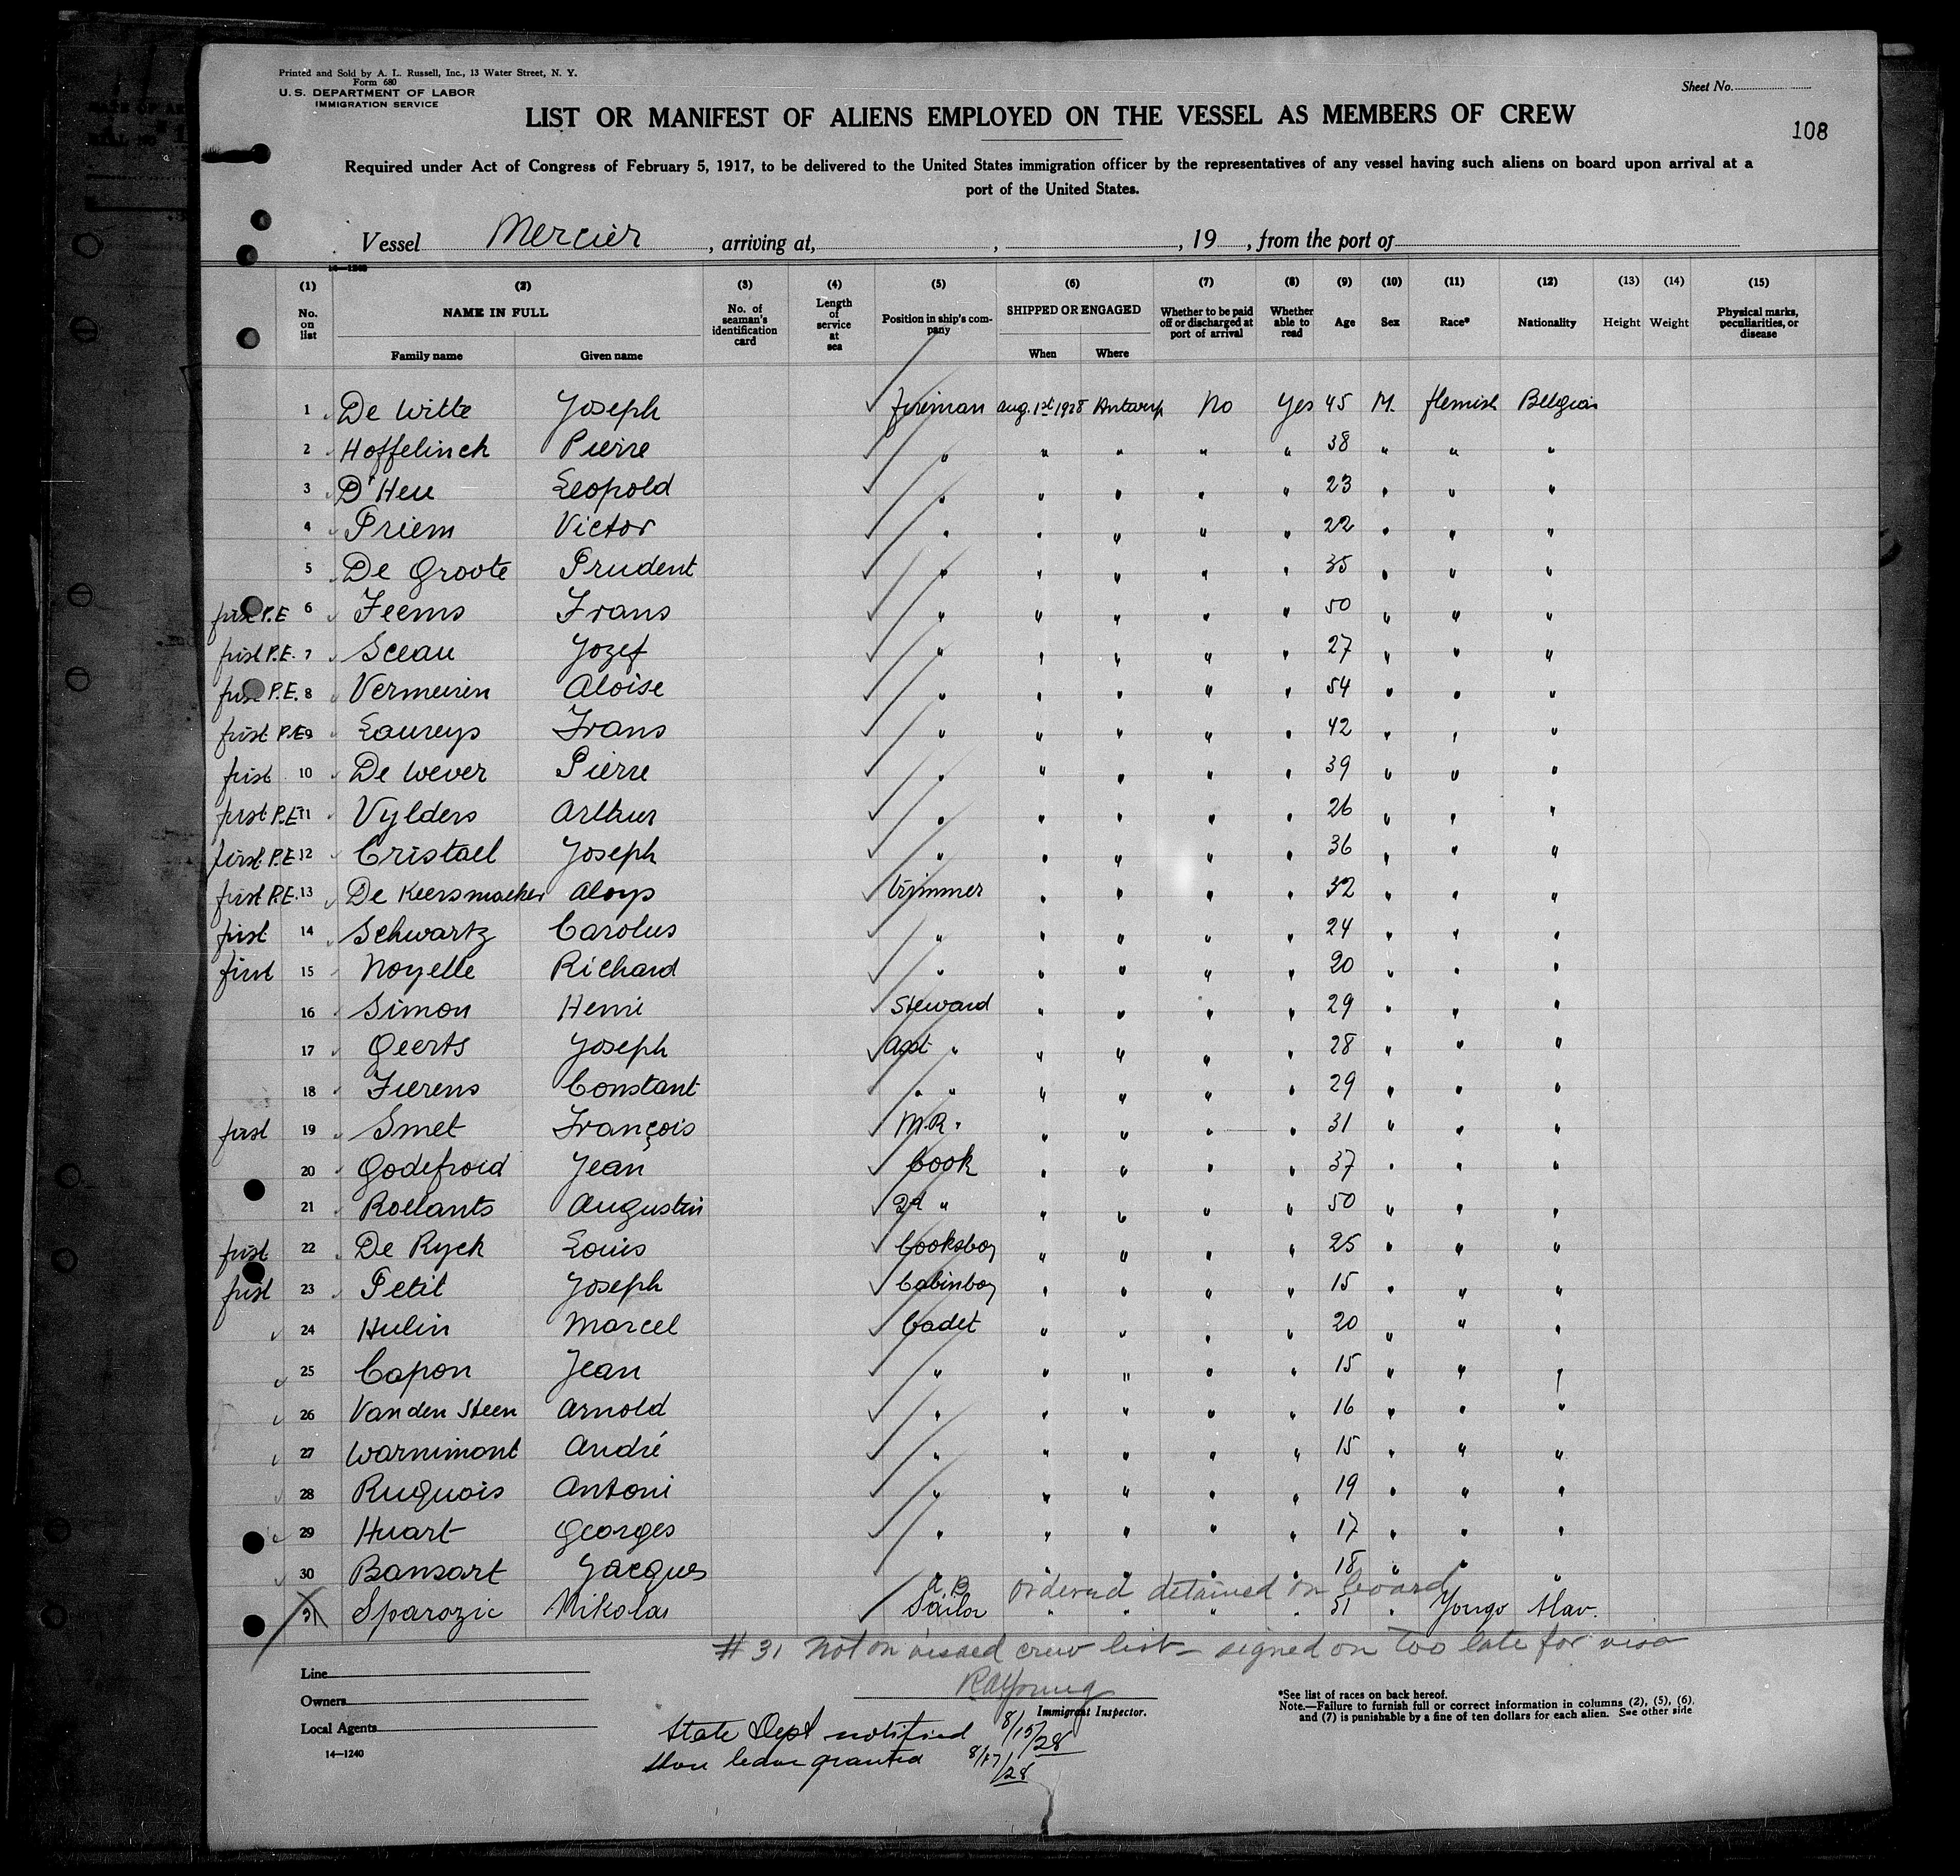 Printed and Sold by A. L. Russell, Inc., 13 Water Street, N. Y.
Form 680
U. S. DEPARTMENT OF LABOR
IMMIGRATION SERVICE
Sheet No.
LIST OR MANIFEST OF ALIENS EMPLOYED ON THE VESSEL AS MEMBERS OF CREW
108
Required under Act of Congress of February 5, 1917, to be delivered to the United States immigration officer by the representatives of any vessel having such aliens on board upon arrival at a
port of the United States.
Vessel Mercier, arriving at, , , 19 , from the port of
14—1240
(1) No. on list (2) NAME IN FULL Family name Given name (3) No. of seaman's identification card (4) Length of service at sea (5) Position in ship's company (6) SHIPPED OR ENGAGED When Where (7) Whether to be paid off or discharged at port of arrival (8) Whether able to read (9) Age (10) Sex (11) Race* (12) Nationality (13) Height (14) Weight (15) Physical marks, peculiarities, or disease
1 De Witte Joseph fireman aug. 1st 1928 Antwerp No Yes 45 M. flemish Belgian
2 Hoffelinck Pierre " " " " " 38 " " "
3 D'Heu Leopold " " " " " 23 " " "
4 Priem Victor " " " " " 22 " " "
5 De Groote Prudent " " " " " 35 " " "
first P.E 6 Feems Frans " " " " " 50 " " "
first P.E. 7 Sceau Jozef " " " " " 27 " " "
first P.E. 8 Vermeiren Aloise " " " " " 54 " " "
first P.E 9 Laureys Frans " " " " " 42 " " "
first 10 De Wever Pierre " " " " " 39 " " "
first P.E 11 Vylders Arthur " " " " " 26 " " "
first P.E 12 Cristael Joseph " " " " " 36 " " "
first P.E. 13 De Keersmaeker Aloys trimmer " " " " 32 " " "
first 14 Schwartz Carolus " " " " " 24 " " "
first 15 Noyelle Richard " " " " " 20 " " "
16 Simon Henri Steward " " " " 29 " " "
17 Geerts Joseph Asst " " " " " 28 " " "
18 Fierens Constant " " " " " " 29 " " "
first 19 Smet François M.R. " " " " 31 " " "
20 Godefroid Jean Cook " " " " 37 " " "
21 Roelants Augustin 2d " " " " " 50 " " "
first 22 De Ryck Louis Cooksboy " " " " 25 " " "
first 23 Petit Joseph Cabinboy " " " " 15 " " "
24 Hulin Marcel Cadet " " " " 20 " " "
25 Capon Jean " " " " " 15 " " "
26 Van den Steen Arnold " " " " " 16 " " "
27 Warnimont André " " " " " 15 " " "
28 Ruquois Antoni " " " " " 19 " " "
29 Huart Georges " " " " " 17 " " "
30 Bansart Jacques " " " " 18 " " "
A B ordered detained on board
31 Sparozic Nikolas Sailor " " " " 51 " Yougo Slav.
# 31 Not on visaed crew list - signed on too late for visa
RA Young
Line
Owners
Local Agents
14—1240
Immigrant Inspector.
State Dept notified 8/15/28
Shore leave granted 8/17/28
*See list of races on back hereof.
Note.—Failure to furnish full or correct information in columns (2), (5), (6),
and (7) is punishable by a fine of ten dollars for each alien. See other side